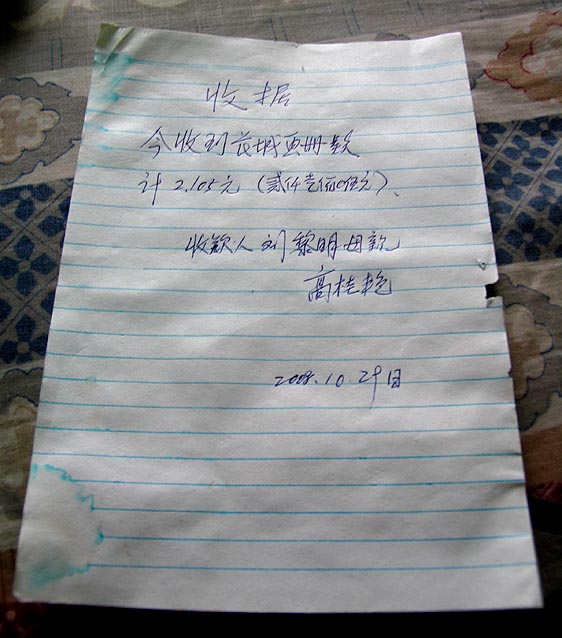 收据
今收到长城画册款
计2.105元（贰仟壹佰〇伍元）、
收款人 刘黎明母亲
高桂艳
2008.10.29日